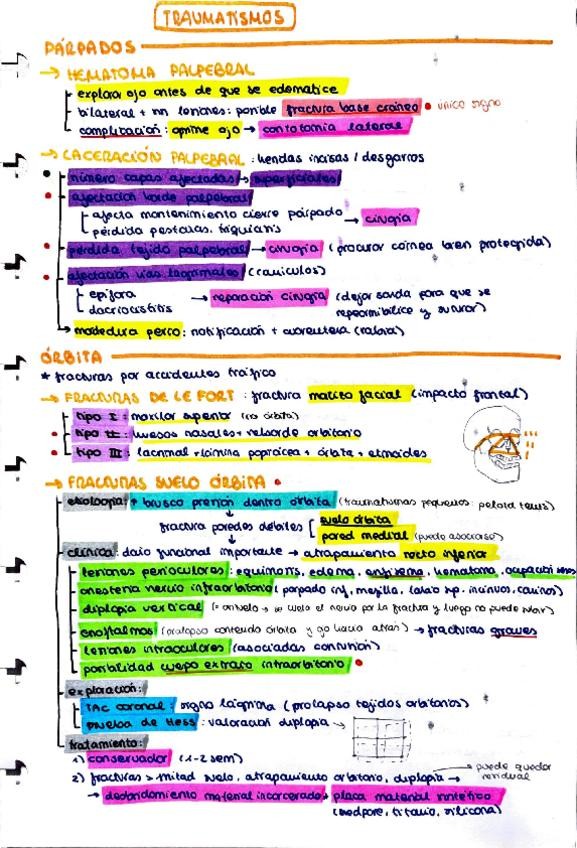 TRAUMATISMOS
PÁRPADOS
→ HEMATOMA PALPEBRAL
explorar ojo antes de que se edematice
bilateral + nn lesiones: posible fractura base cráneo • único signo
complicación: oprime ojo → cantotomía lateral
→ LACERACIÓN PALPEBRAL: heridas incisas / desgarros
número capas afectadas → superficiales
afectación borde palpebral
afecta mantenimiento cierre párpado → cirugía
pérdida pestañas, triquiasis
pérdida tejido palpebral → cirugía (procurar córnea bien protegida)
afectación vías lagrimales (canículos)
epífora
dacriocistitis → reparación cirugía (dejar sonda para que se
repermibilice y suturar)
→ mordedura perro: notificación + cuarentena (rabia)
ÓRBITA
* fracturas por accidentes tráfico
→ FRACTURAS DE LE FORT: fractura macizo facial (impacto frontal)
tipo I: maxilar superior (no órbita)
tipo II: huesos nasales + reborde orbitario
tipo III: lacrimal + lámina papirácea + órbita + etmoides
→ FRACTURAS SUELO ÓRBITA •
etiología: ↑ brusco presión dentro órbita (traumatismos pequeños: pelota tenis)
↓
fractura paredes débiles suelo órbita
pared medial (puede asociarse)
↓
clínica: daño funcional importante → atrapamiento recto inferior
lesiones perioculares: equimosis, edema, enfisema, hematoma, ocupación senos
anestesia nervio infraorbitario (párpado inf, mejilla, labio sp, incisivos, caninos)
diplopia vertical
enoftalmos (prolapso contenido órbita y go hacia atrás) → fracturas graves
lesiones intraoculares (asociadas contusión)
posibilidad cuerpo extraño intraorbitario •
exploración:
TAC coronal: signo lágrima (prolapso tejidos orbitarios)
prueba de Hess: valoración diplopia →
tratamiento:
1) conservador (1-2 sem)
2) fracturas > mitad suelo, atrapamiento orbitario, diplopia → puede quedar
residual
→ desbridamiento material incarcerado + placa material sintético
(medpore, titanio, silicona)